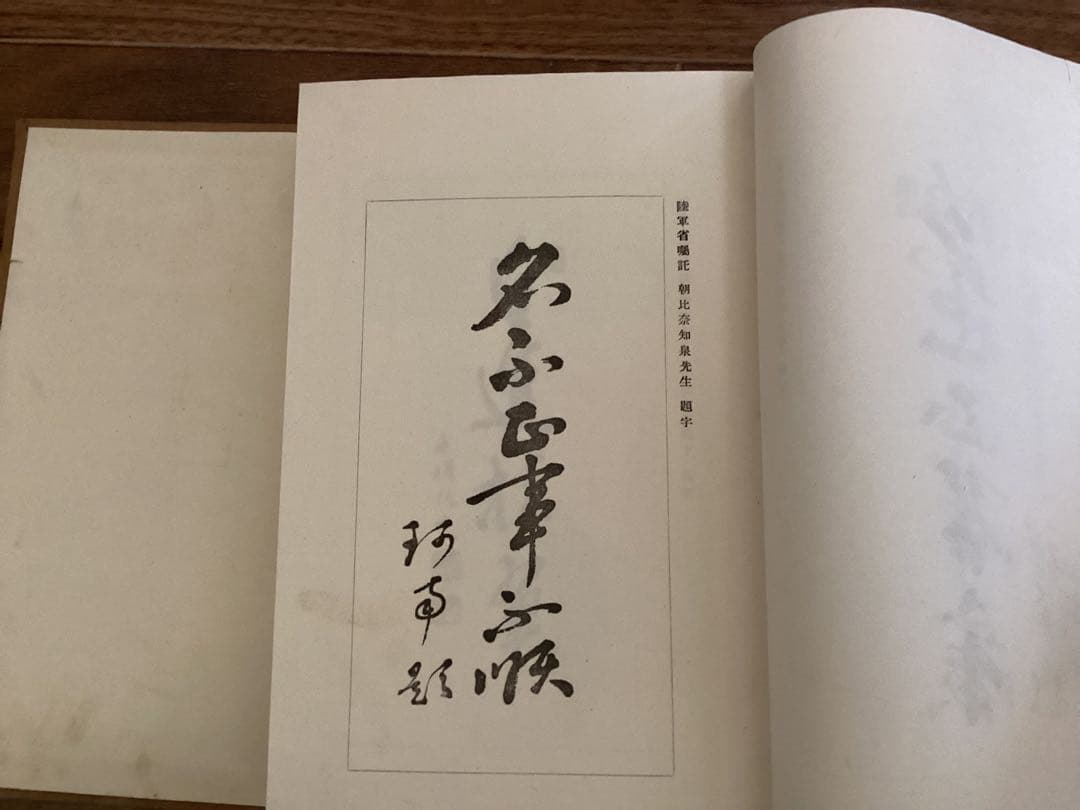 陸軍省囑託 朝比奈知泉先生 題字
名不正事不順
珂南題